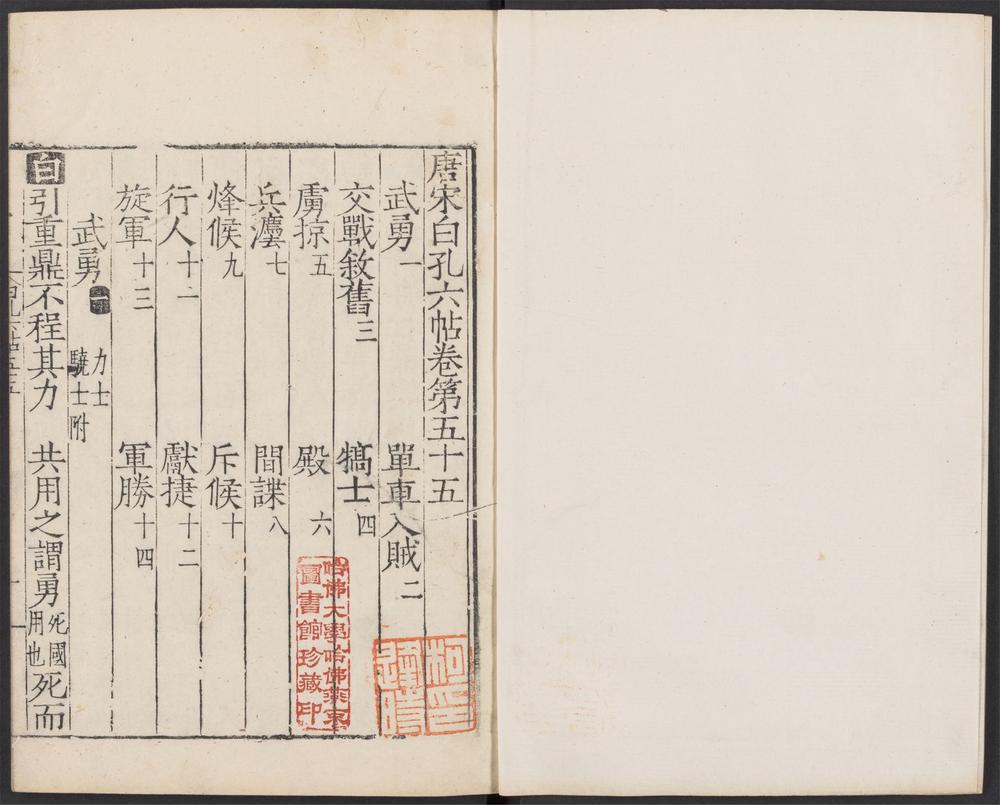 唐宋白孔六帖卷第五十五
武勇一　單車入賊二
交戰敘舊三　犒士四
虜掠五　殿六
兵灋七　間諜八
烽候九　斥候十
行人十一　獻捷十二
旋軍十三　軍勝十四
武勇一　力士
驍士附
白引重鼎不程其力　共用之謂勇死國
用也死而
哈佛大學哈佛燕京
圖書館珍藏印